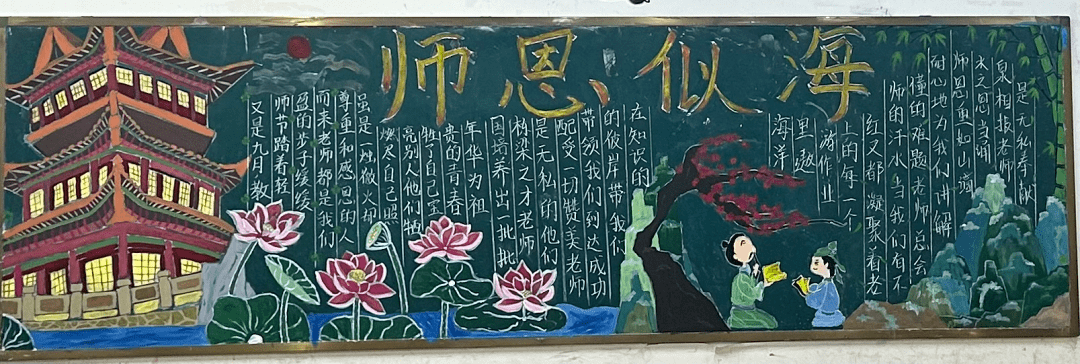 师恩似海
又是九月教
师节踏着轻
盈的步子缓缓
而来老师都是我们
尊重和感恩的人
虽是一烛微火却
燃尽自己照
亮别人他们牺
牲了自己宝
贵的青春
年华为祖
国培养出一批批
栋梁之才老师
是无私的他们
配受一切赞美老师
带领我们到达成功
的彼岸带我们
在知识的
海洋
里遨
游作业
上的每一个
红叉都凝聚着老
师的汗水当我们有不
懂的难题老师总会
耐心地为我们讲解
师恩重如山滴
水之恩当涌
泉相报老师
是无私奉献